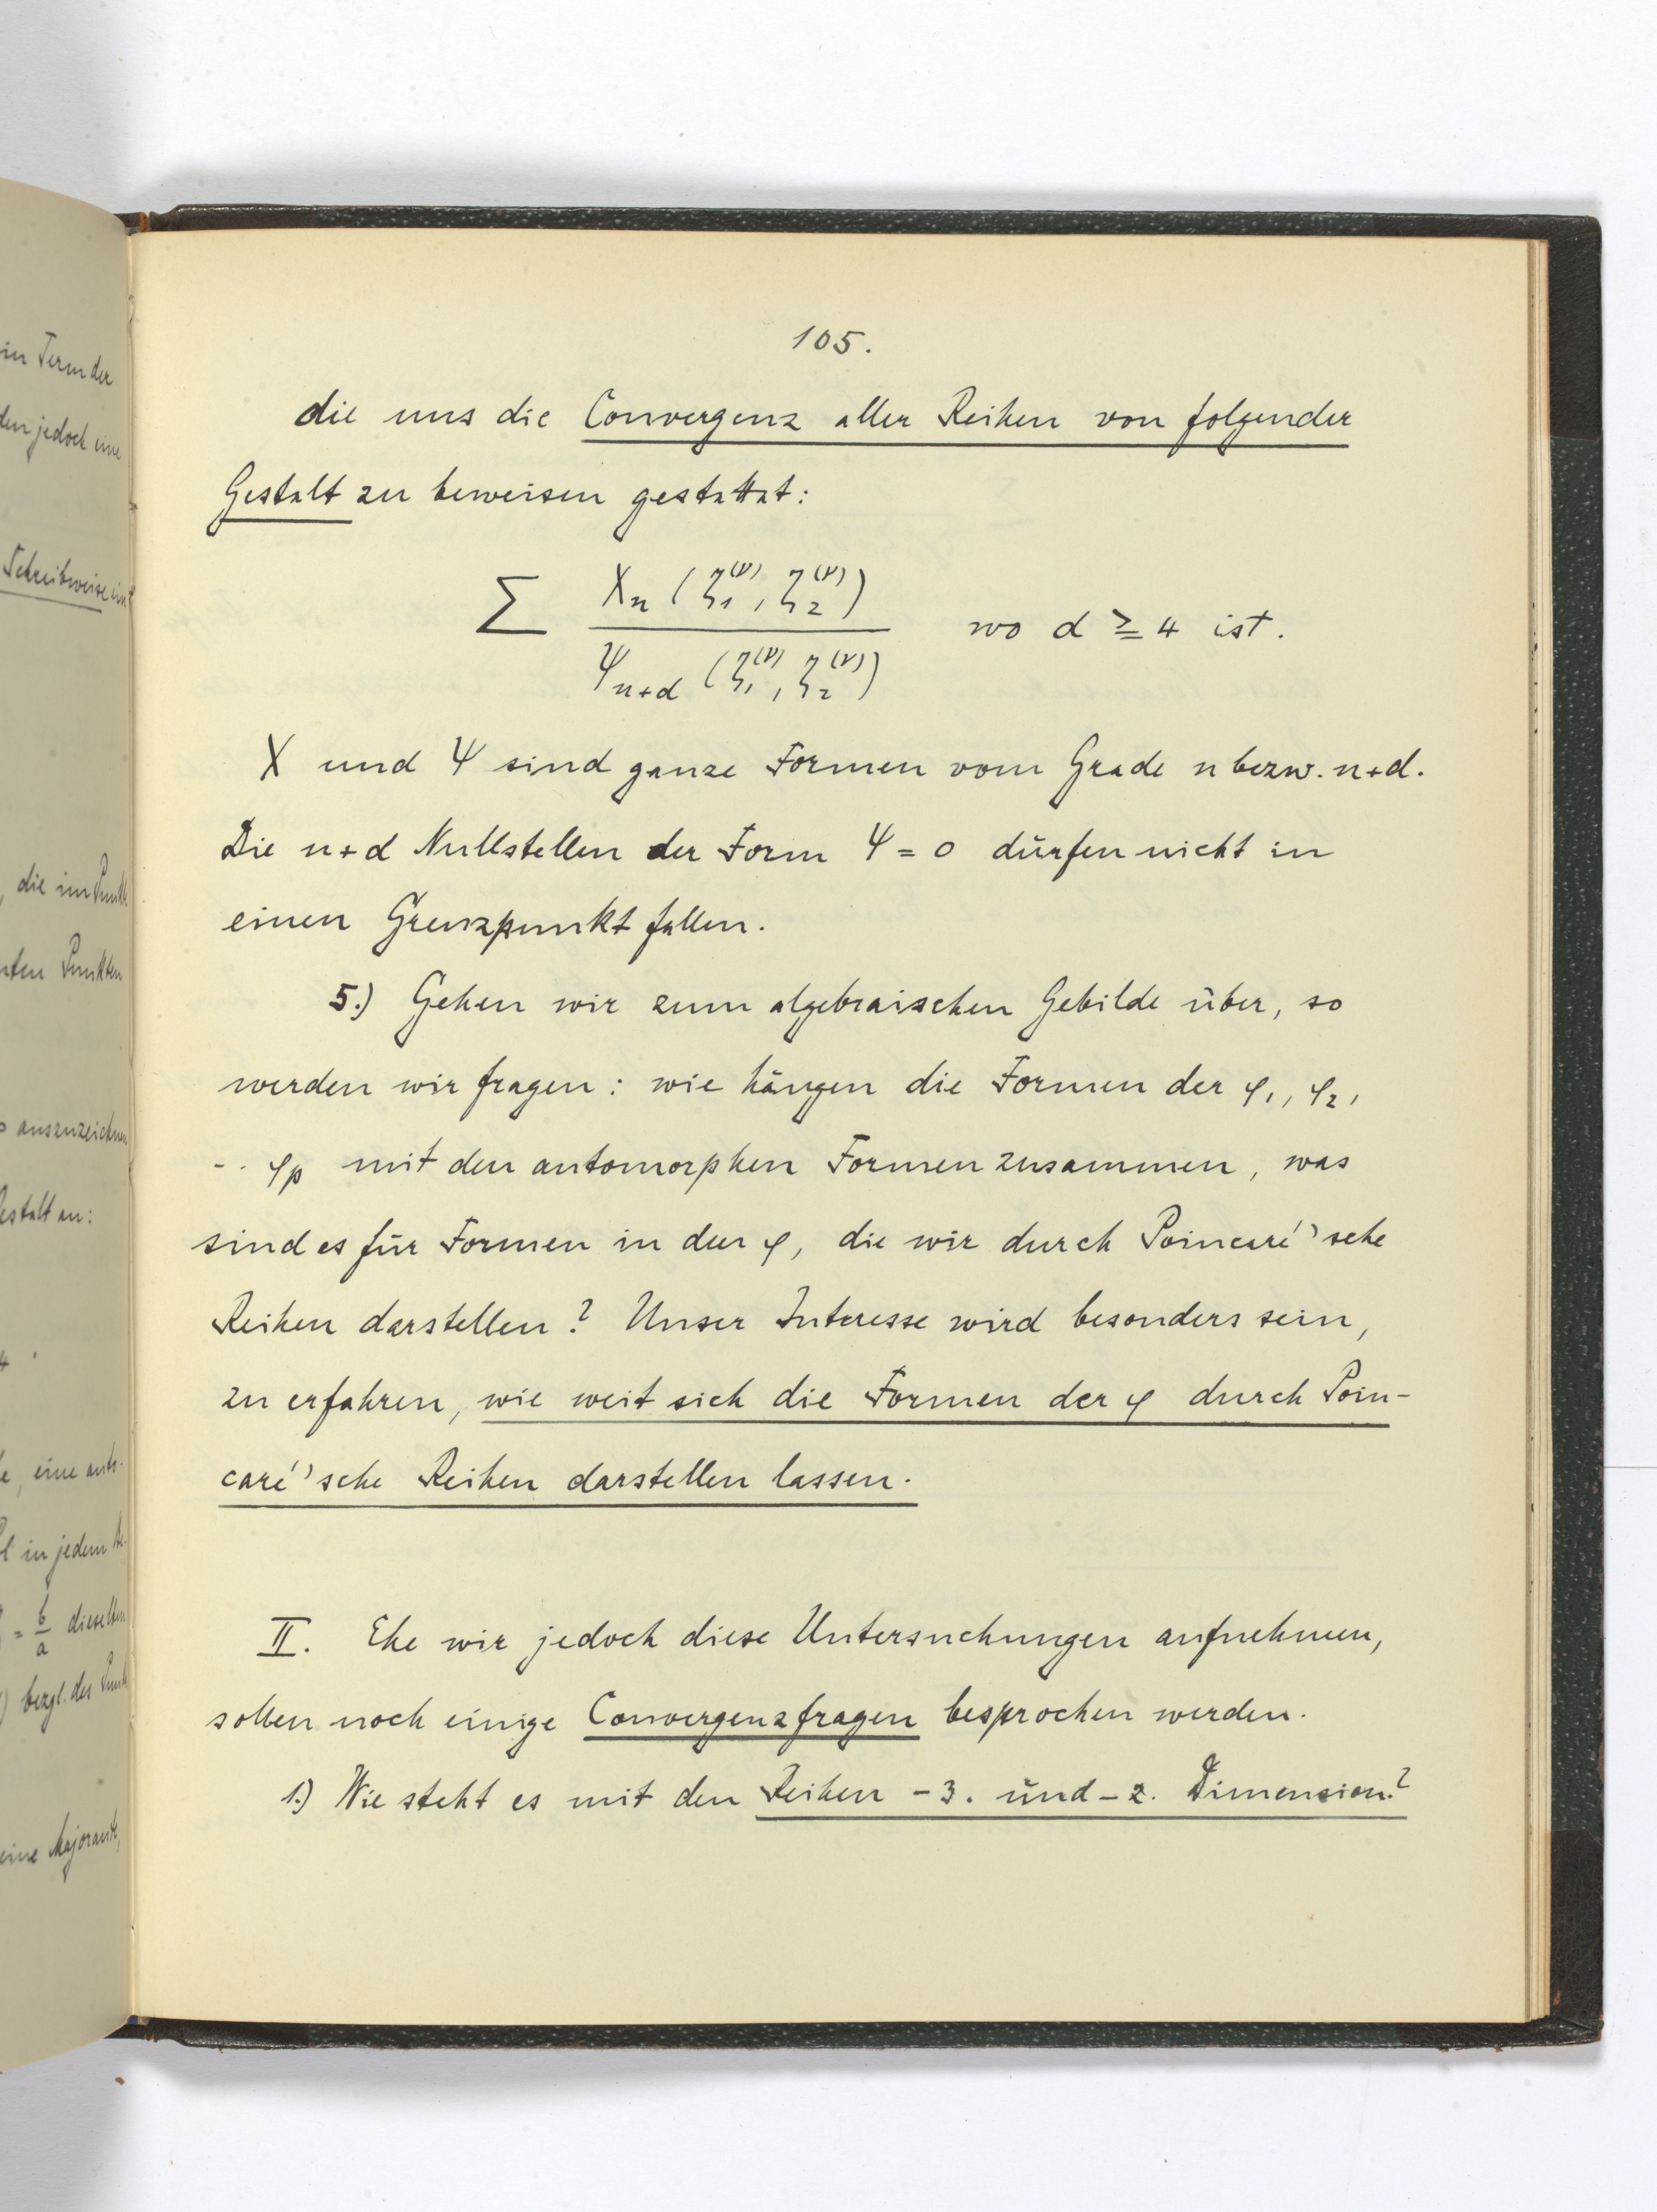 105.
die uns die Convergenz aller Reihen von folgender
Gestalt zu beweisen gestattet:
∑ Χn (ζ1^(ν), ζ2^(ν)) / Ψn+d (ζ1^(ν), ζ2^(ν)) wo d ≧ 4 ist.
Χ und Ψ sind ganze Formen vom Grade n bezw. n+d.
Die n+d Nullstellen der Form Ψ = 0 dürfen nicht in
einen Grenzpunkt fallen.
5.) Gehen wir zum algebraischen Gebilde über, so
werden wir fragen: wie hängen die Formen der φ1, φ2,
.. φp mit den automorphen Formen zusammen, was
sind es für Formen in den φ, die wir durch Poincaré'sche
Reihen darstellen? Unser Interesse wird besonders sein,
zu erfahren, wie weit sich die Formen der φ durch Poin-
caré'sche Reihen darstellen lassen.
II. Ehe wir jedoch diese Untersuchungen aufnehmen,
sollen noch einige Convergenzfragen besprochen werden.
1.) Wie steht es mit den Reihen -3. und -2. Dimension?
in Term der
den jedoch eine
Schreibweise
, die im Punkte
Punkten
auszuzeichnen
Gestalt an:
4 .
, eine
in jedem
= b/a dieselben
) bezgl. des
eine Majorante,